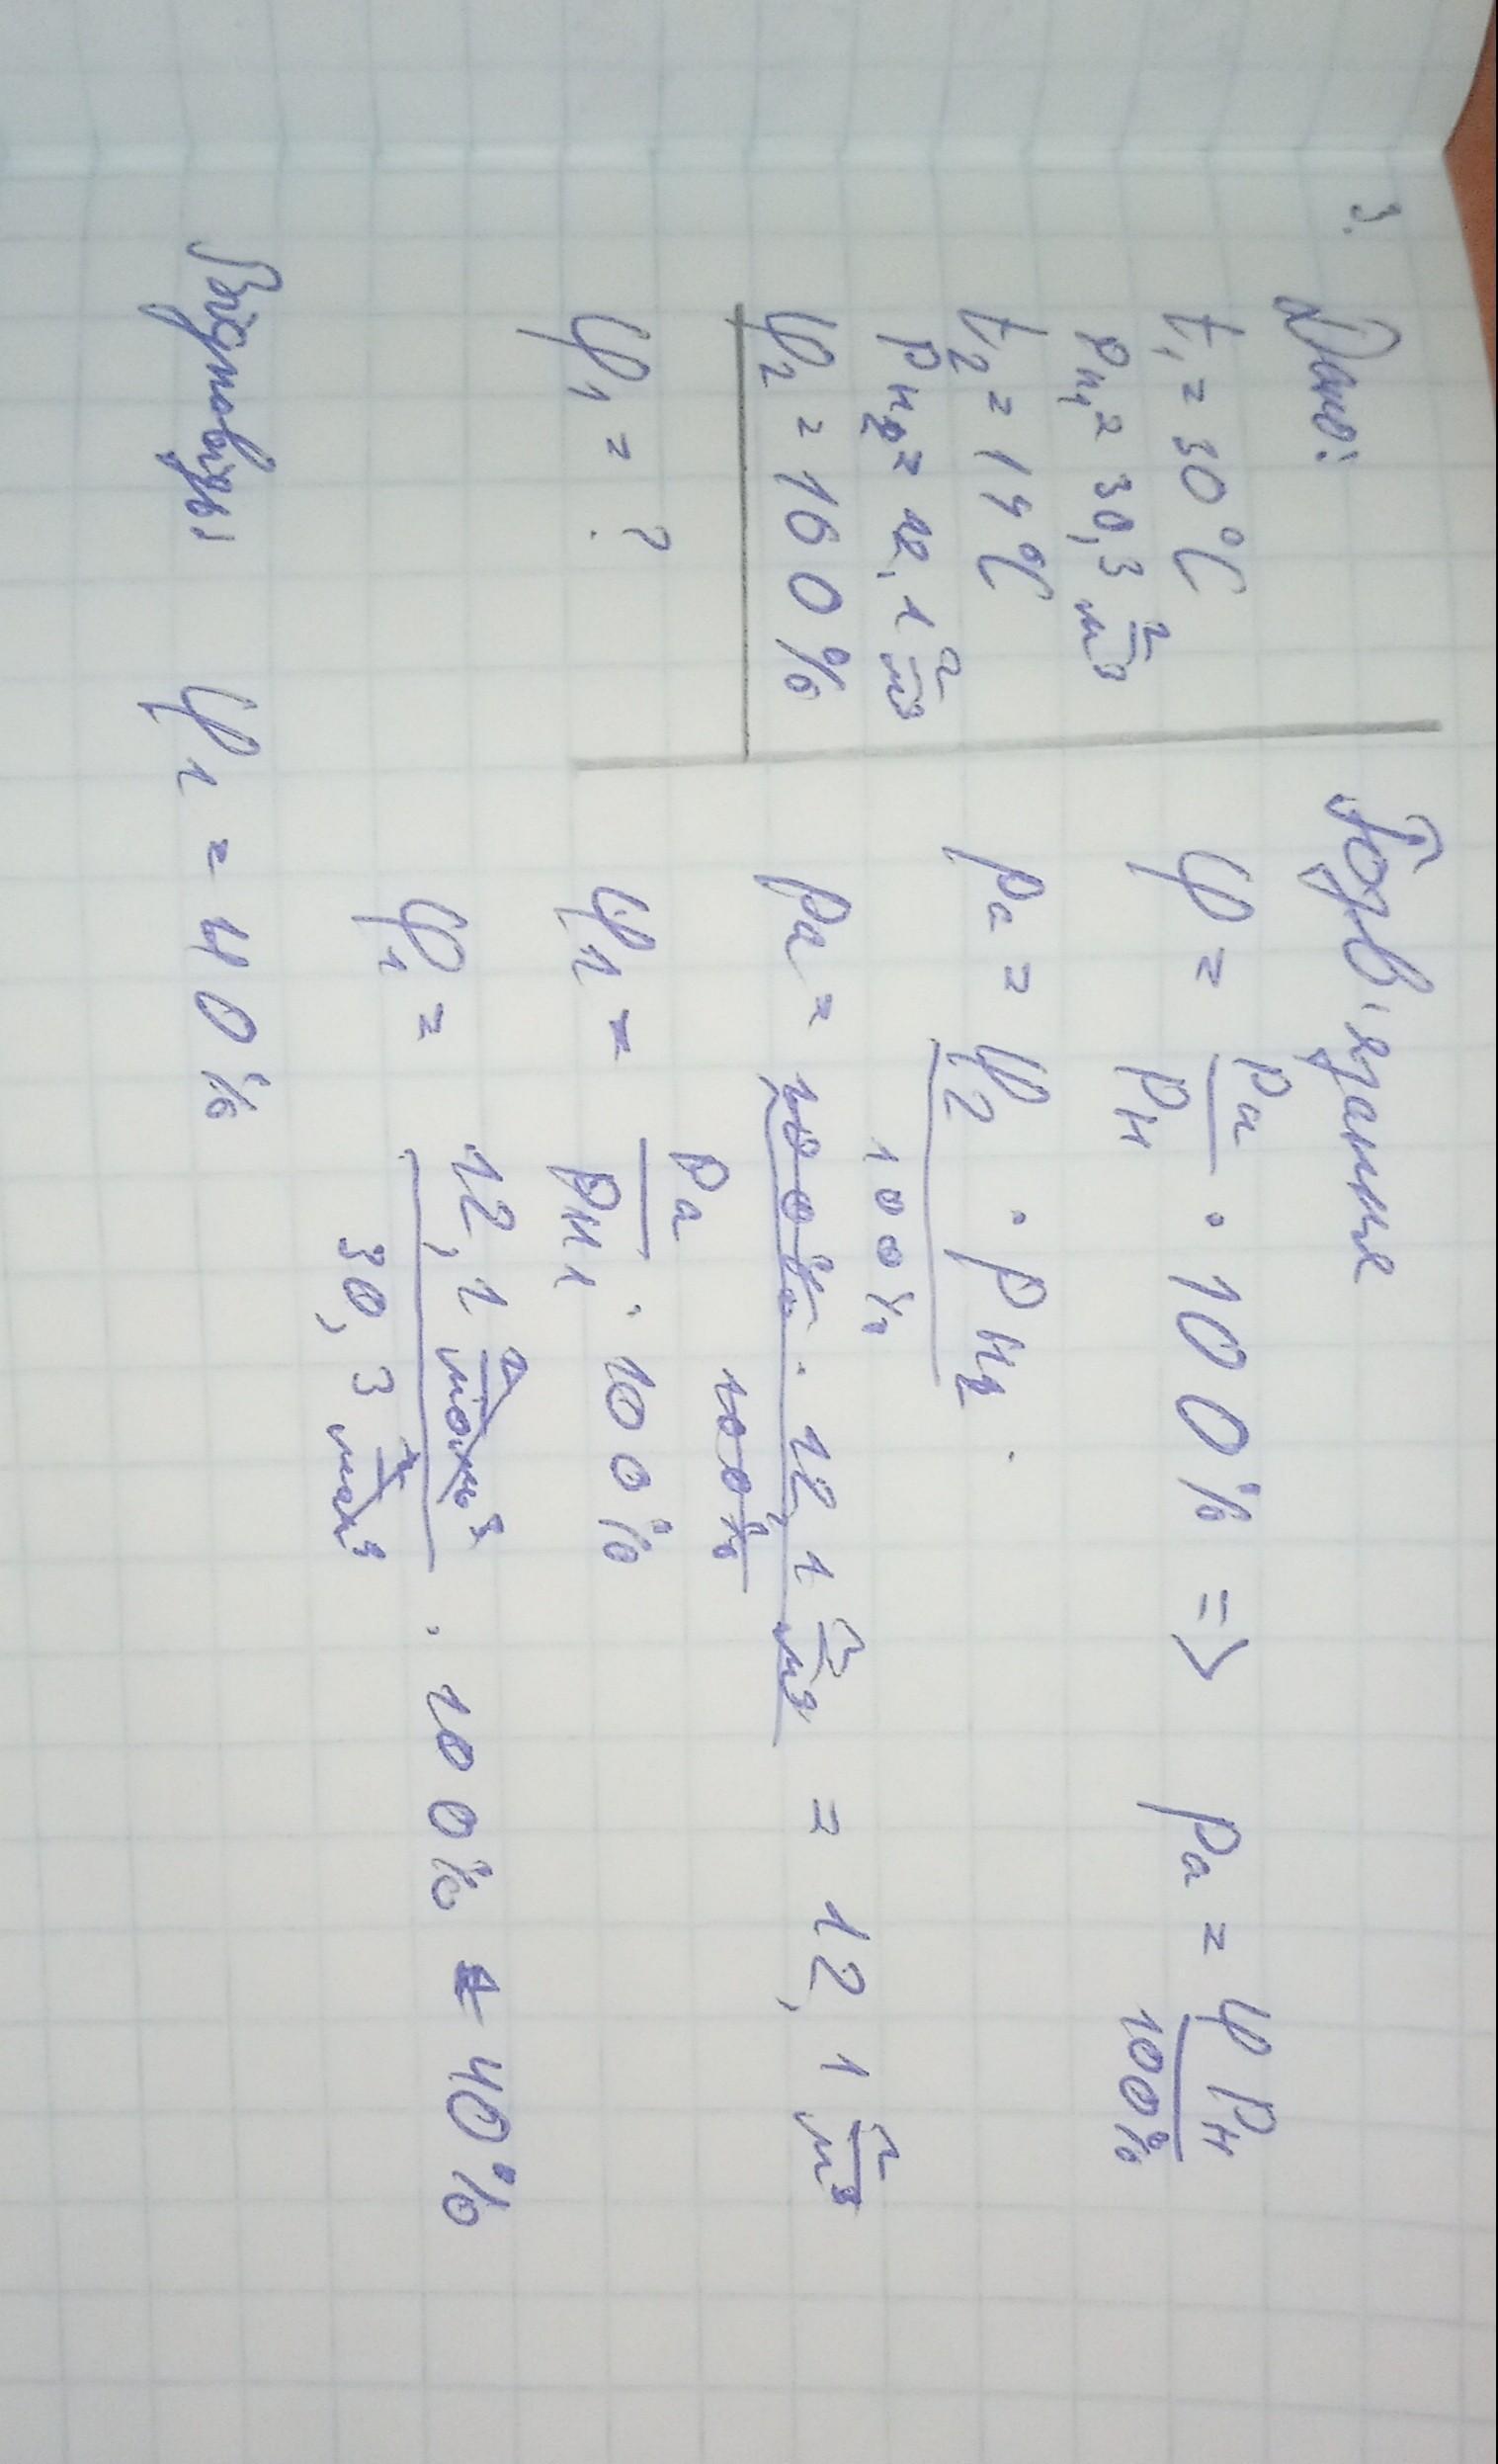 3.
Дано:
t₁ = 30°C
ρн₁ = 30,3 г/м³
t₂ = 14°C
ρн₂ = 12,1 г/м³
φ₂ = 100%
φ₁ = ?
Розв'язання
φ = ρа/ρн · 100% => ρа = φ ρн/100%
ρа = φ₂ · ρн₂/100%
ρа = 100% · 12,1 г/м³/100% = 12,1 г/м³
φ₁ = ρа/ρн₁ · 100%
φ₁ = 12,1/30,3 · 100% = 40%
Відповідь: φ₁ = 40%